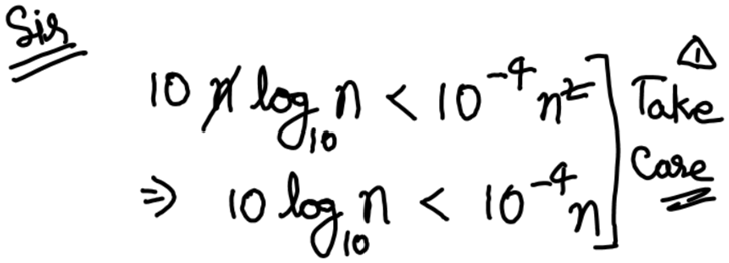 Sir
10 n log₁₀ n < 10⁻⁴ n²
⇒ 10 log₁₀ n < 10⁻⁴ n
! Take
Care